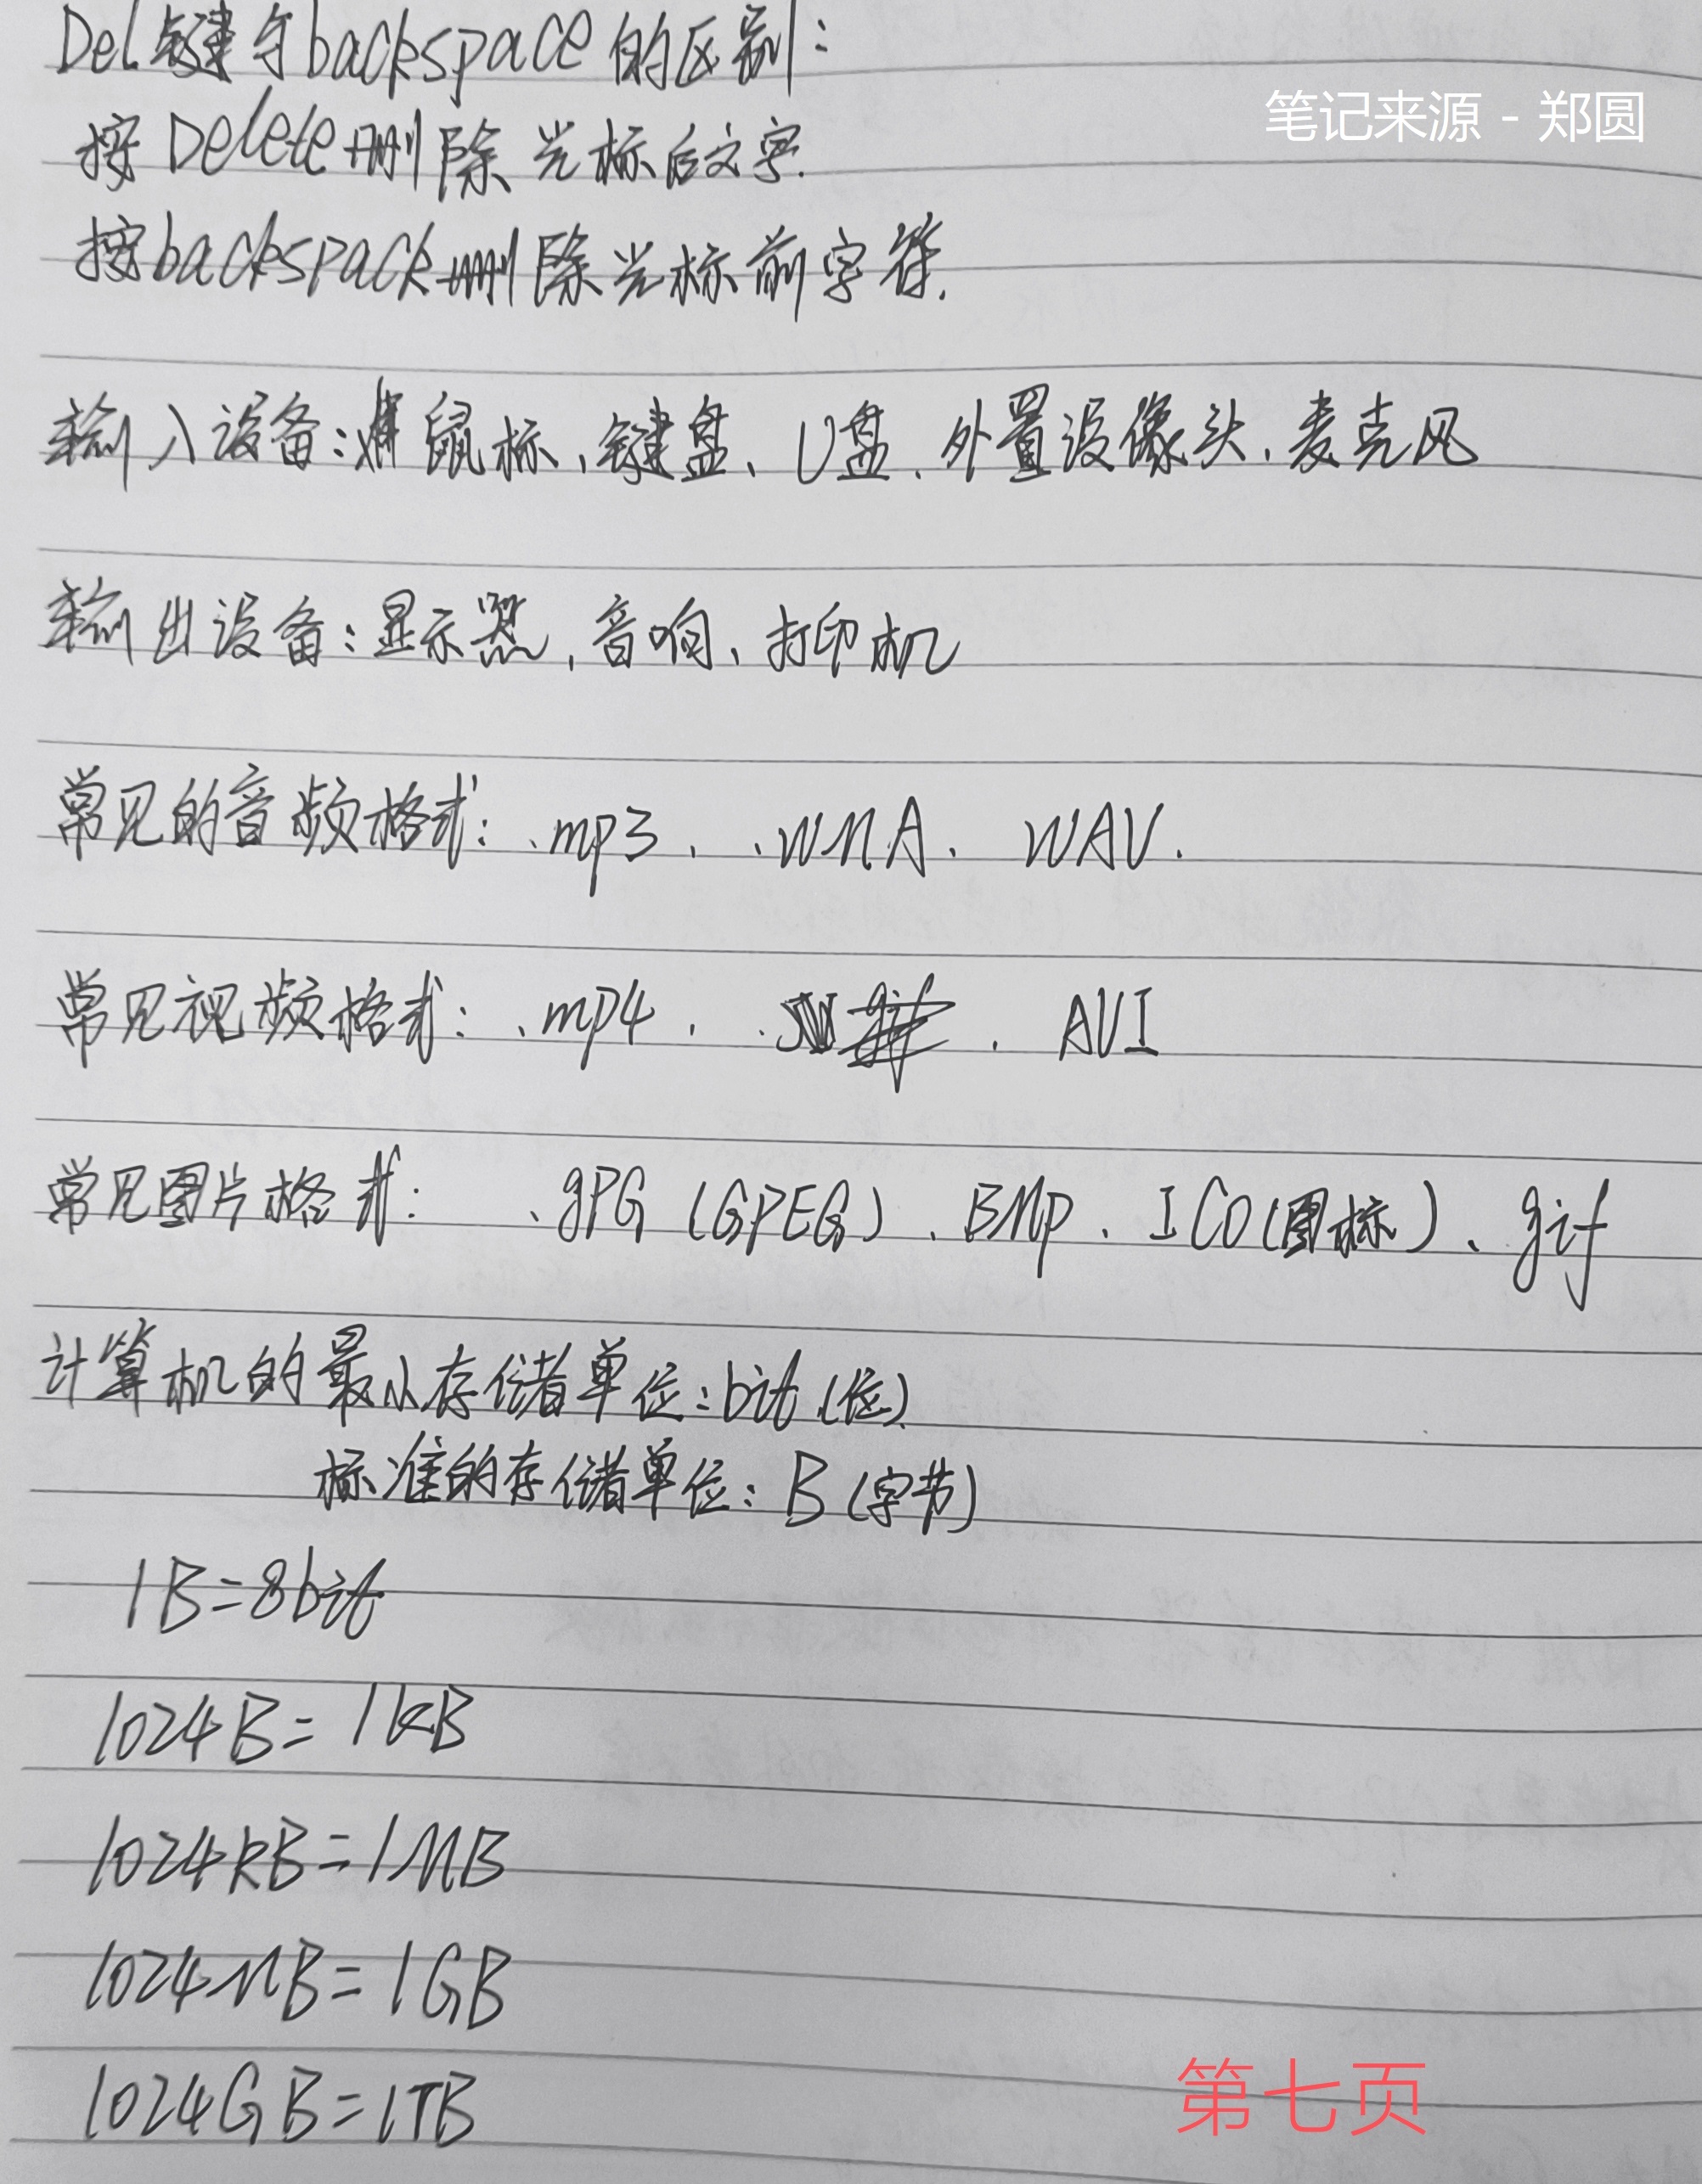 Del键与backspace的区别:
笔记来源 - 郑圆
按Delete删除光标后文字.
按backspack删除光标前字符.
输入设备:鼠标、键盘、U盘、外置设像头、麦克风
输出设备:显示器、音响、打印机
常见的音频格式:、mp3、.WMA、WAV.
常见视频格式:.mp4、. AVI
常见图片格式:、gPG(GPEG)、BMp、ICO(图标)、gif
计算机的最小存储单位:bit(位)
标准的存储单位:B(字节)
1B=8bit
1024B=1kB
1024kB=1MB
1024MB=1GB
1024GB=1TB
第七页